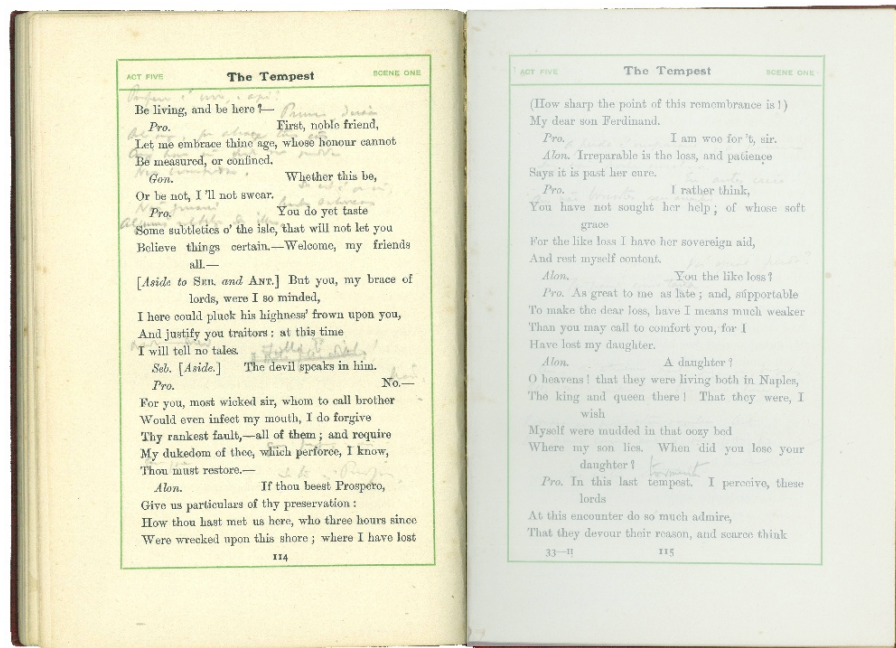 ACT FIVE The Tempest SCENE ONE
Be living, and be here?—
Pro. First, noble friend,
Let me embrace thine age, whose honour cannot
Be measured, or confined.
Gon. Whether this be,
Or be not, I 'll not swear.
Pro. You do yet taste
Some subtleties o' the isle, that will not let you
Believe things certain.—Welcome, my friends
all.—
[Aside to SEB. and ANT.] But you, my brace of
lords, were I so minded,
I here could pluck his highness' frown upon you,
And justify you traitors: at this time
I will tell no tales.
Seb. [Aside.] The devil speaks in him.
Pro. No.—
For you, most wicked sir, whom to call brother
Would even infect my mouth, I do forgive
Thy rankest fault,—all of them; and require
My dukedom of thee, which perforce, I know,
Thou must restore.—
Alon. If thou beest Prospero,
Give us particulars of thy preservation:
How thou hast met us here, who three hours since
Were wrecked upon this shore; where I have lost
114
ACT FIVE The Tempest SCENE ONE
(How sharp the point of this remembrance is!)
My dear son Ferdinand.
Pro. I am woe for 't, sir.
Alon. Irreparable is the loss, and patience
Says it is past her cure.
Pro. I rather think,
You have not sought her help; of whose soft
grace
For the like loss I have her sovereign aid,
And rest myself content.
Alon. You the like loss?
Pro. As great to me as late; and, supportable
To make the dear loss, have I means much weaker
Than you may call to comfort you, for I
Have lost my daughter.
Alon. A daughter?
O heavens! that they were living both in Naples,
The king and queen there! That they were, I
wish
Myself were mudded in that oozy bed
Where my son lies. When did you lose your
daughter?
Pro. In this last tempest. I perceive, these
lords
At this encounter do so much admire,
That they devour their reason, and scarce think
33—II 115